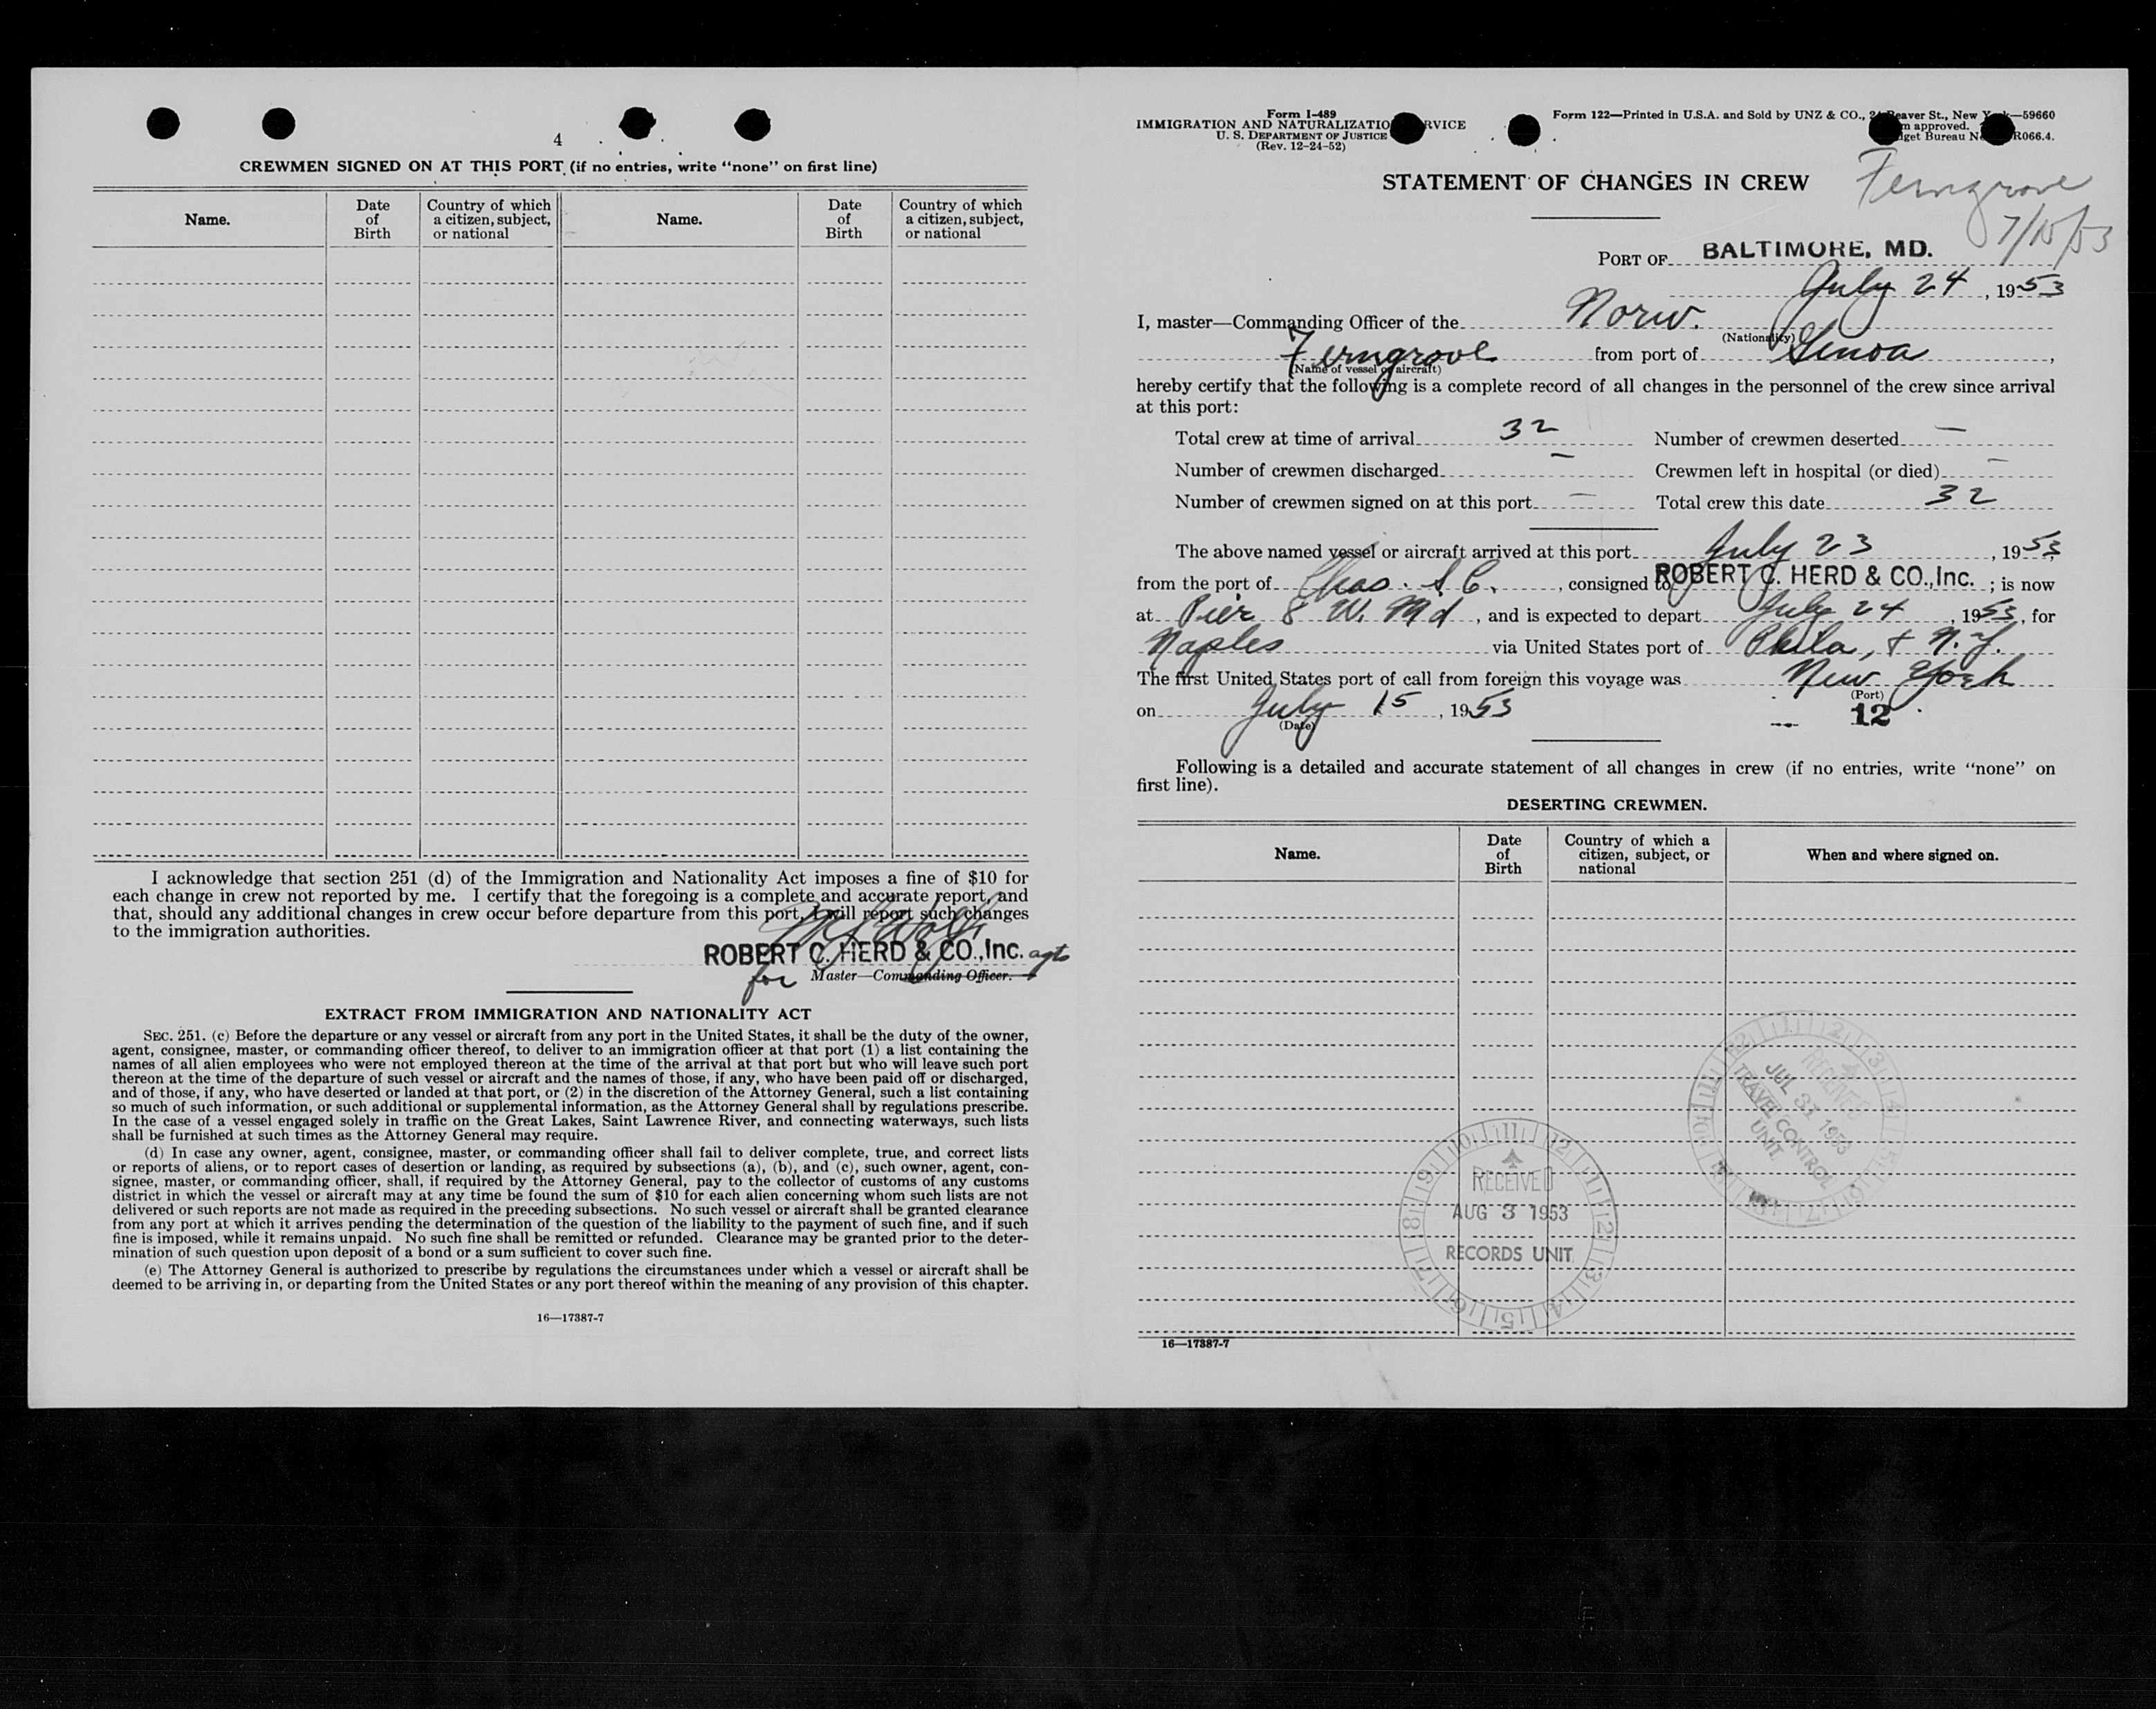 4
CREWMEN SIGNED ON AT THIS PORT (if no entries, write "none" on first line)
Name.
Date
of
Birth
Country of which
a citizen, subject,
or national
Name.
Date
of
Birth
Country of which
a citizen, subject,
or national
I acknowledge that section 251 (d) of the Immigration and Nationality Act imposes a fine of $10 for
each change in crew not reported by me. I certify that the foregoing is a complete and accurate report, and
that, should any additional changes in crew occur before departure from this port, I will report such changes
to the immigration authorities.
ROBERT C. HERD & CO., Inc. agts
for Master—Commanding Officer.
EXTRACT FROM IMMIGRATION AND NATIONALITY ACT
SEC. 251. (c) Before the departure or any vessel or aircraft from any port in the United States, it shall be the duty of the owner,
agent, consignee, master, or commanding officer thereof, to deliver to an immigration officer at that port (1) a list containing the
names of all alien employees who were not employed thereon at the time of the arrival at that port but who will leave such port
thereon at the time of the departure of such vessel or aircraft and the names of those, if any, who have been paid off or discharged,
and of those, if any, who have deserted or landed at that port, or (2) in the discretion of the Attorney General, such a list containing
so much of such information, or such additional or supplemental information, as the Attorney General shall by regulations prescribe.
In the case of a vessel engaged solely in traffic on the Great Lakes, Saint Lawrence River, and connecting waterways, such lists
shall be furnished at such times as the Attorney General may require.
(d) In case any owner, agent, consignee, master, or commanding officer shall fail to deliver complete, true, and correct lists
or reports of aliens, or to report cases of desertion or landing, as required by subsections (a), (b), and (c), such owner, agent, con-
signee, master, or commanding officer, shall, if required by the Attorney General, pay to the collector of customs of any customs
district in which the vessel or aircraft may at any time be found the sum of $10 for each alien concerning whom such lists are not
delivered or such reports are not made as required in the preceding subsections. No such vessel or aircraft shall be granted clearance
from any port at which it arrives pending the determination of the question of the liability to the payment of such fine, and if such
fine is imposed, while it remains unpaid. No such fine shall be remitted or refunded. Clearance may be granted prior to the deter-
mination of such question upon deposit of a bond or a sum sufficient to cover such fine.
(e) The Attorney General is authorized to prescribe by regulations the circumstances under which a vessel or aircraft shall be
deemed to be arriving in, or departing from the United States or any port thereof within the meaning of any provision of this chapter.
16—17387-7
Form I-489
IMMIGRATION AND NATURALIZATIO RVICE
U. S. DEPARTMENT OF JUSTICE
(Rev. 12-24-52)
Form 122—Printed in U.S.A. and Sold by UNZ & CO., 24 Beaver St., New York—59660
m approved.
get Bureau No R066.4.
STATEMENT OF CHANGES IN CREW
Ferngrove
7/15/53
PORT OF BALTIMORE, MD.
July 24, 1953
I, master—Commanding Officer of the Norw.
(Nationality)
Ferngrove from port of Genoa,
(Name of vessel or aircraft)
hereby certify that the following is a complete record of all changes in the personnel of the crew since arrival
at this port:
Total crew at time of arrival 32 Number of crewmen deserted —
Number of crewmen discharged — Crewmen left in hospital (or died) —
Number of crewmen signed on at this port — Total crew this date 32
The above named vessel or aircraft arrived at this port July 23, 1953
from the port of Chas. S. C., consigned to ROBERT C. HERD & CO., Inc.; is now
at Pier 8 W. Md, and is expected to depart July 24, 1953, for
Naples via United States port of Phila, & N.Y.
The first United States port of call from foreign this voyage was New York
(Port)
on July 15, 1953
(Date)
12
Following is a detailed and accurate statement of all changes in crew (if no entries, write "none" on
first line).
DESERTING CREWMEN.
Name.
Date
of
Birth
Country of which a
citizen, subject, or
national
When and where signed on.
RECEIVED
JUL 31 1953
TRAVEL CONTROL
UNIT
RECEIVED
AUG 3 1953
RECORDS UNIT
16—17387-7